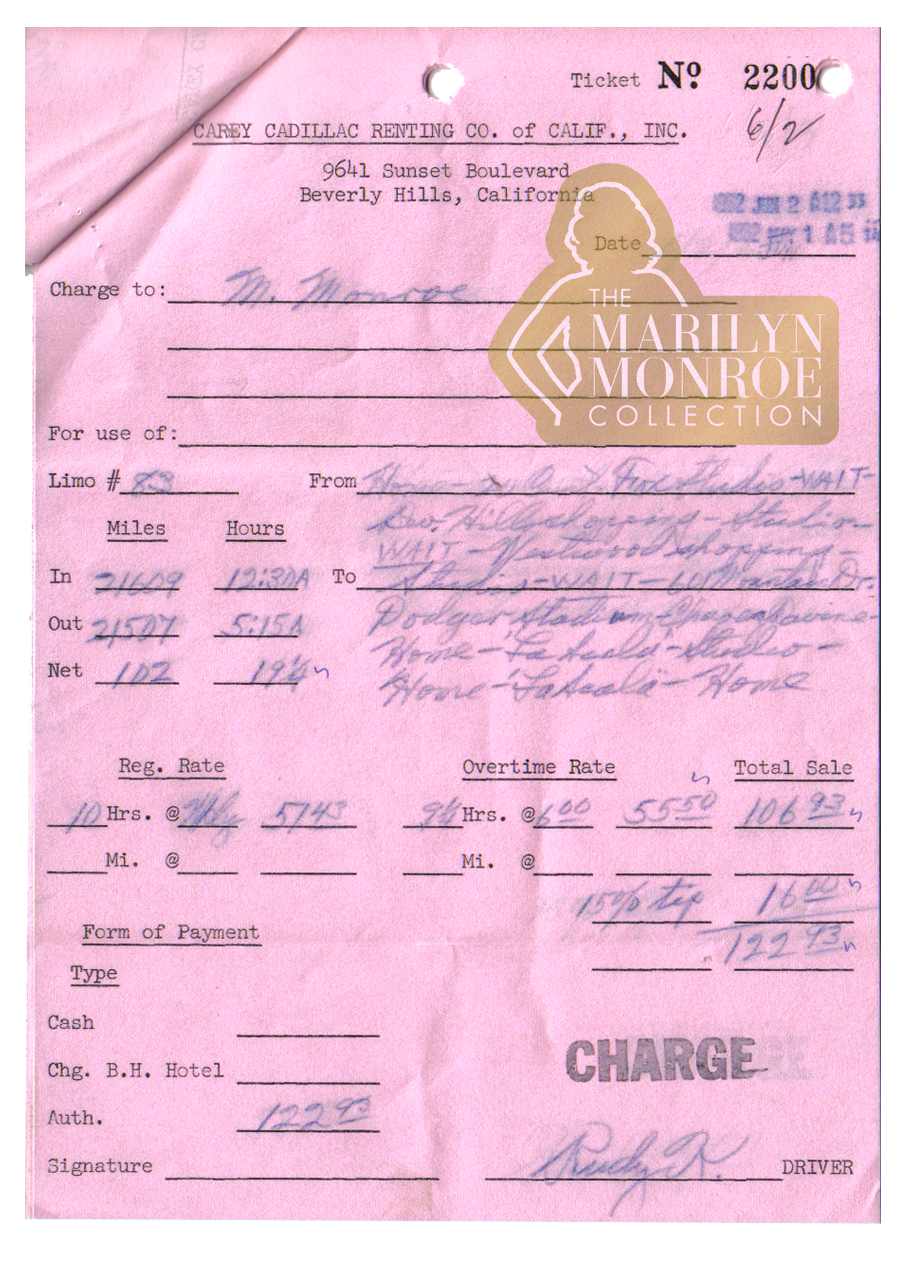 Ticket Nº 2200
6/2
CAREY CADILLAC RENTING CO. of CALIF., INC.
9641 Sunset Boulevard
Beverly Hills, California
1962 JUN 2 A12 33
Date 1962 1 A5 14
JUN
Charge to: M. Monroe
THE
MARILYN
MONROE
COLLECTION
For use of:
Limo # 83 From Home - Fox Studio - WAIT -
Bev. Hills shopping - Studio -
Miles Hours
WAIT - Westwood shopping -
In 21609 12:30A To Studio - WAIT - Mountain Dr.
Out 21507 5:15A Dodger Stadium Chavez Ravine -
Net 102 19¼ Home - "La Scala" - Studio -
Home - "La Scala" - Home
Reg. Rate Overtime Rate Total Sale
10 Hrs. @ Wkly 5143 9¼ Hrs. @ 6 00 55 50 106 93
Mi. @ Mi. @
15% tip 16 00
Form of Payment 122 93
Type
Cash
Chg. B.H. Hotel CHARGE
Auth. 122 93
Signature Rudy K. DRIVER